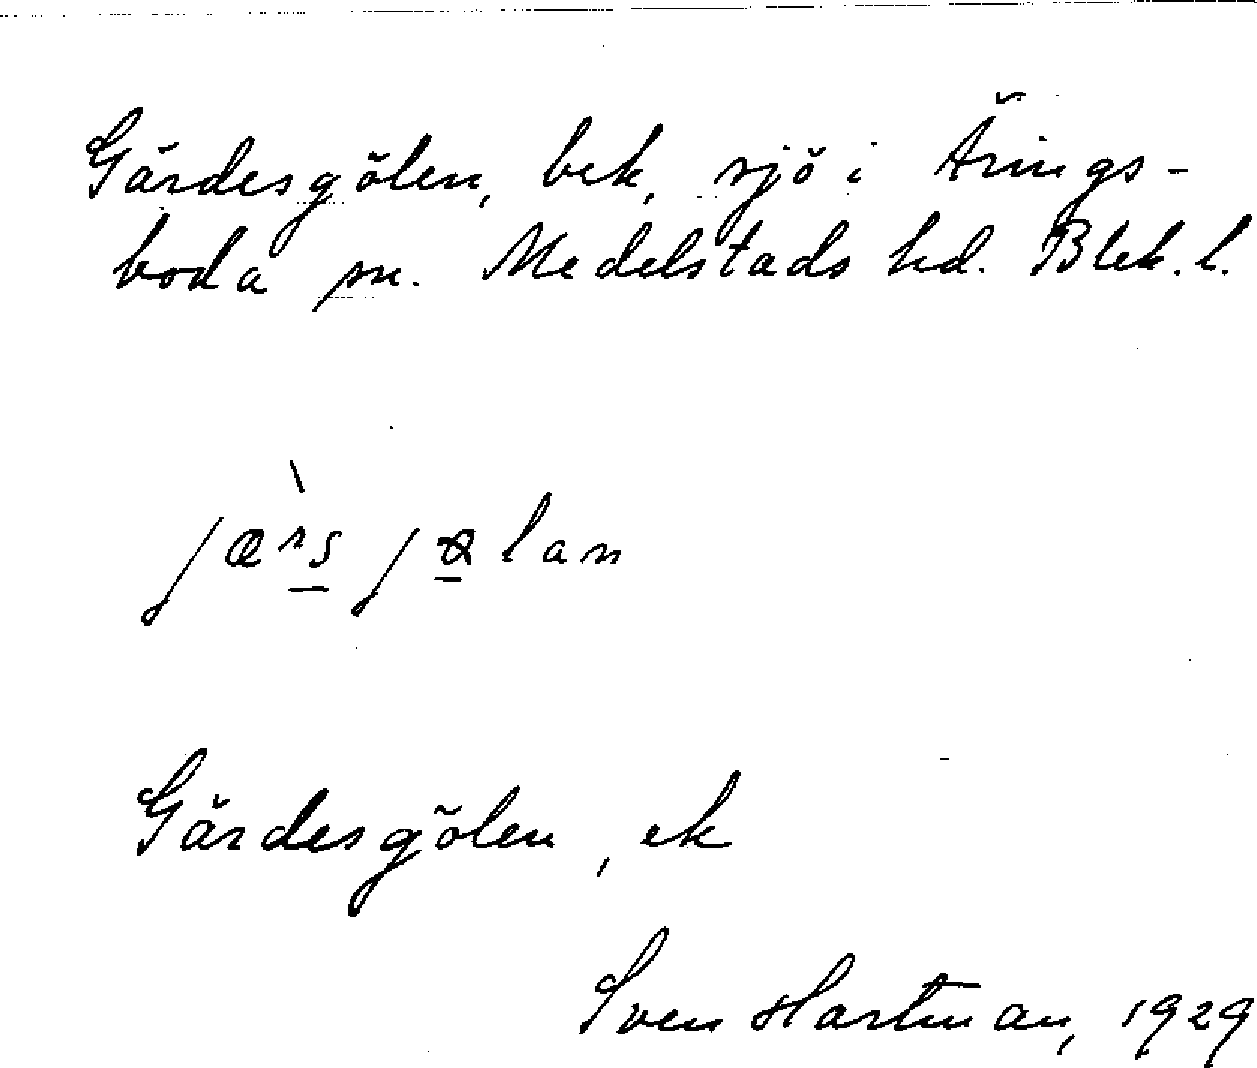 Gärdesgölen, bek, sjö i Ärings-
boda sn. Medelstads hd. Blek. l.
Gärdesgölen, ek
Sven Hartman, 1929